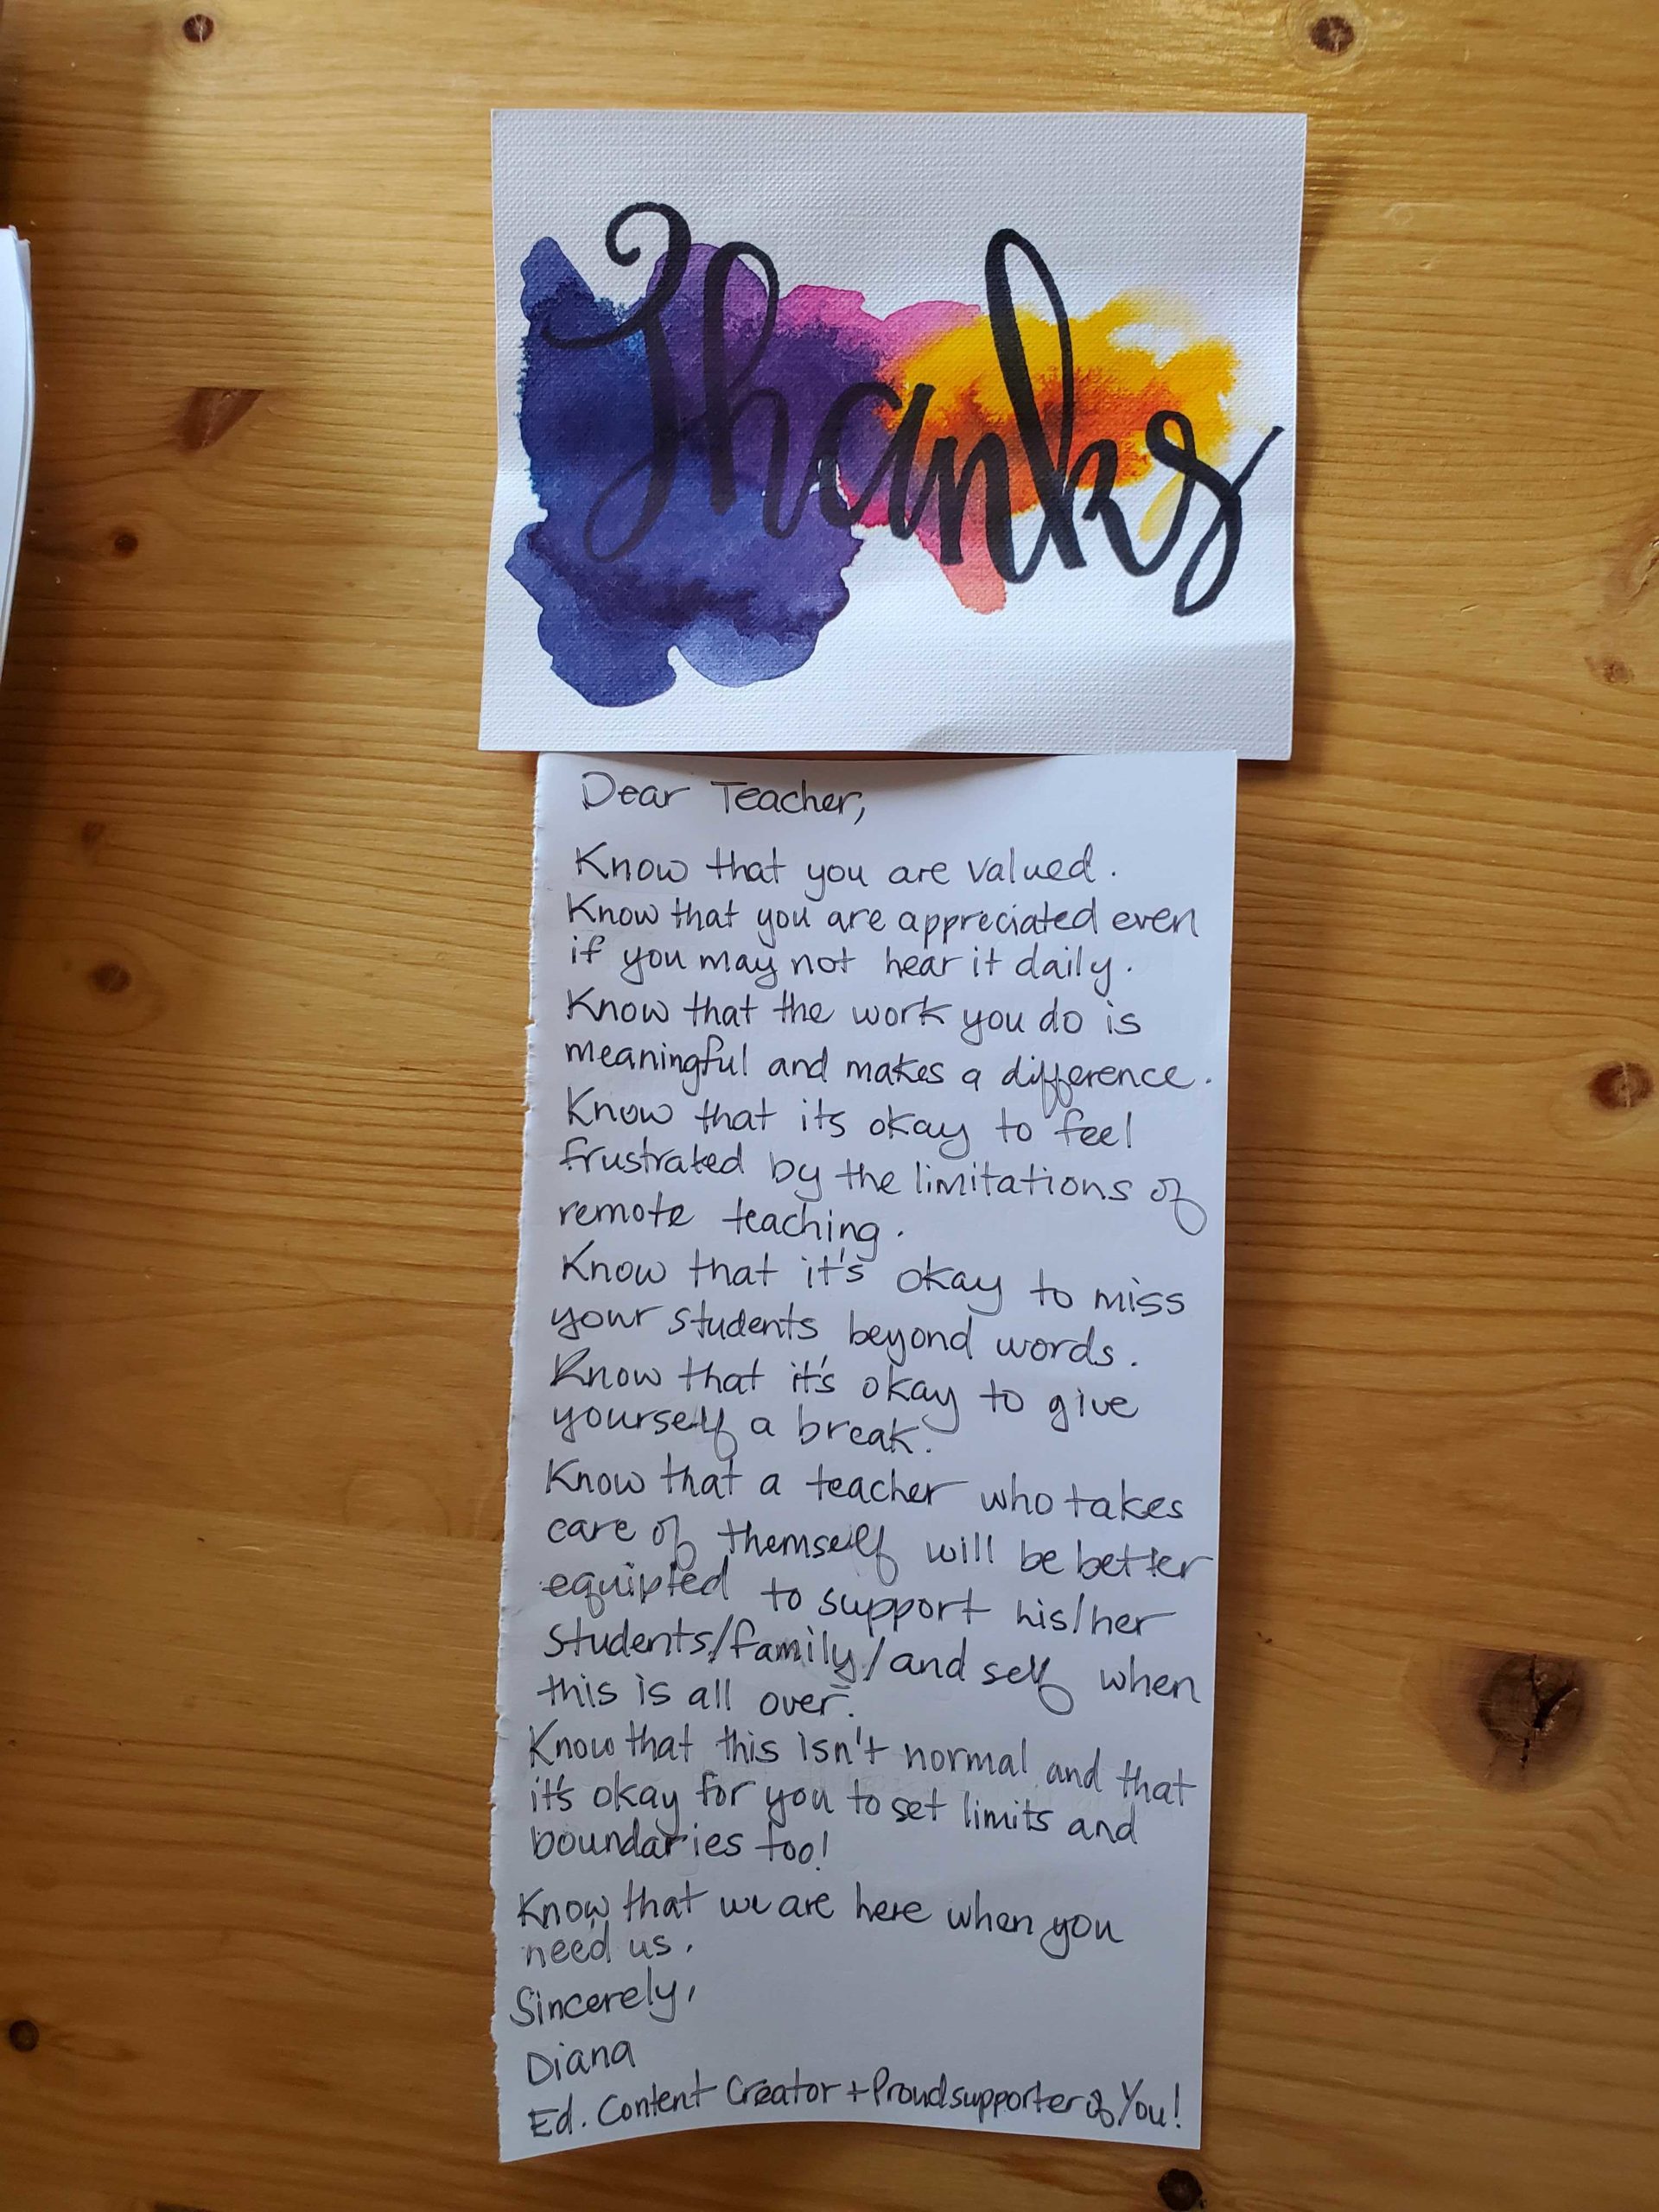 Thanks
Dear Teacher,
Know that you are valued.
Know that you are appreciated even
if you may not hear it daily.
Know that the work you do is
meaningful and makes a difference.
Know that its okay to feel
frustrated by the limitations of
remote teaching.
Know that it's okay to miss
your students beyond words.
Know that it's okay to give
yourself a break.
Know that a teacher who takes
care of themself will be better
equipted to support his/her
students/family/and self when
this is all over.
Know that this isn't normal and that
it's okay for you to set limits and
boundaries too!
Know that we are here when you
need us.
Sincerely,
Diana
Ed. Content Creator + Proud supporter of You!